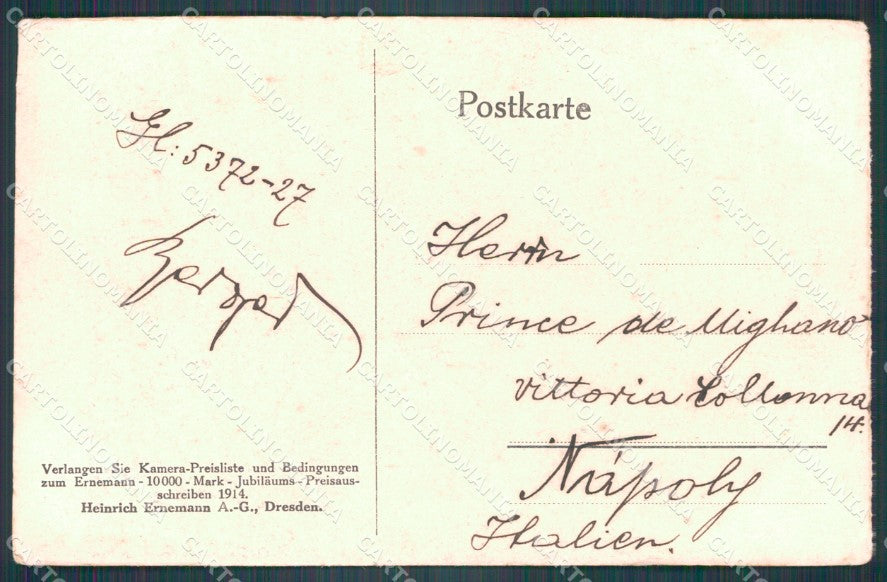 Postkarte
Gl: 5372-27
Berger
Herrn
Prince de Mighano
vittoria Collonna
14.
Nápoly
Italien.
Verlangen Sie Kamera-Preisliste und Bedingungen
zum Ernemann - 10000 - Mark - Jubiläums - Preisaus-
schreiben 1914.
Heinrich Ernemann A.-G., Dresden.
CARTOLINOMANIA